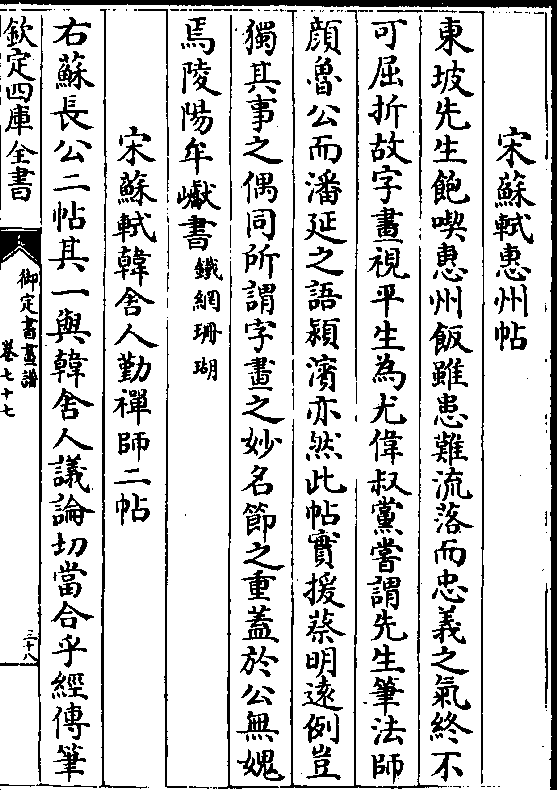 宋蘇軾惠州帖
東坡先生飽喫惠州飯雖患難流落而忠義之氣終不
可屈折故字畫視平生為尤偉叔黨嘗謂先生筆法師
顔魯公而潘延之語潁濱亦然此帖實援蔡明遠例豈
獨其事之偶同所謂字畫之妙名節之重蓋於公無媿
焉陵陽牟巘書鐵網珊瑚
宋蘇軾韓舍人勤禪師二帖
右蘇長公二帖其一與韓舍人議論切當合乎經傳筆
欽定四庫全書
御定書畫譜
卷七十七
三十八